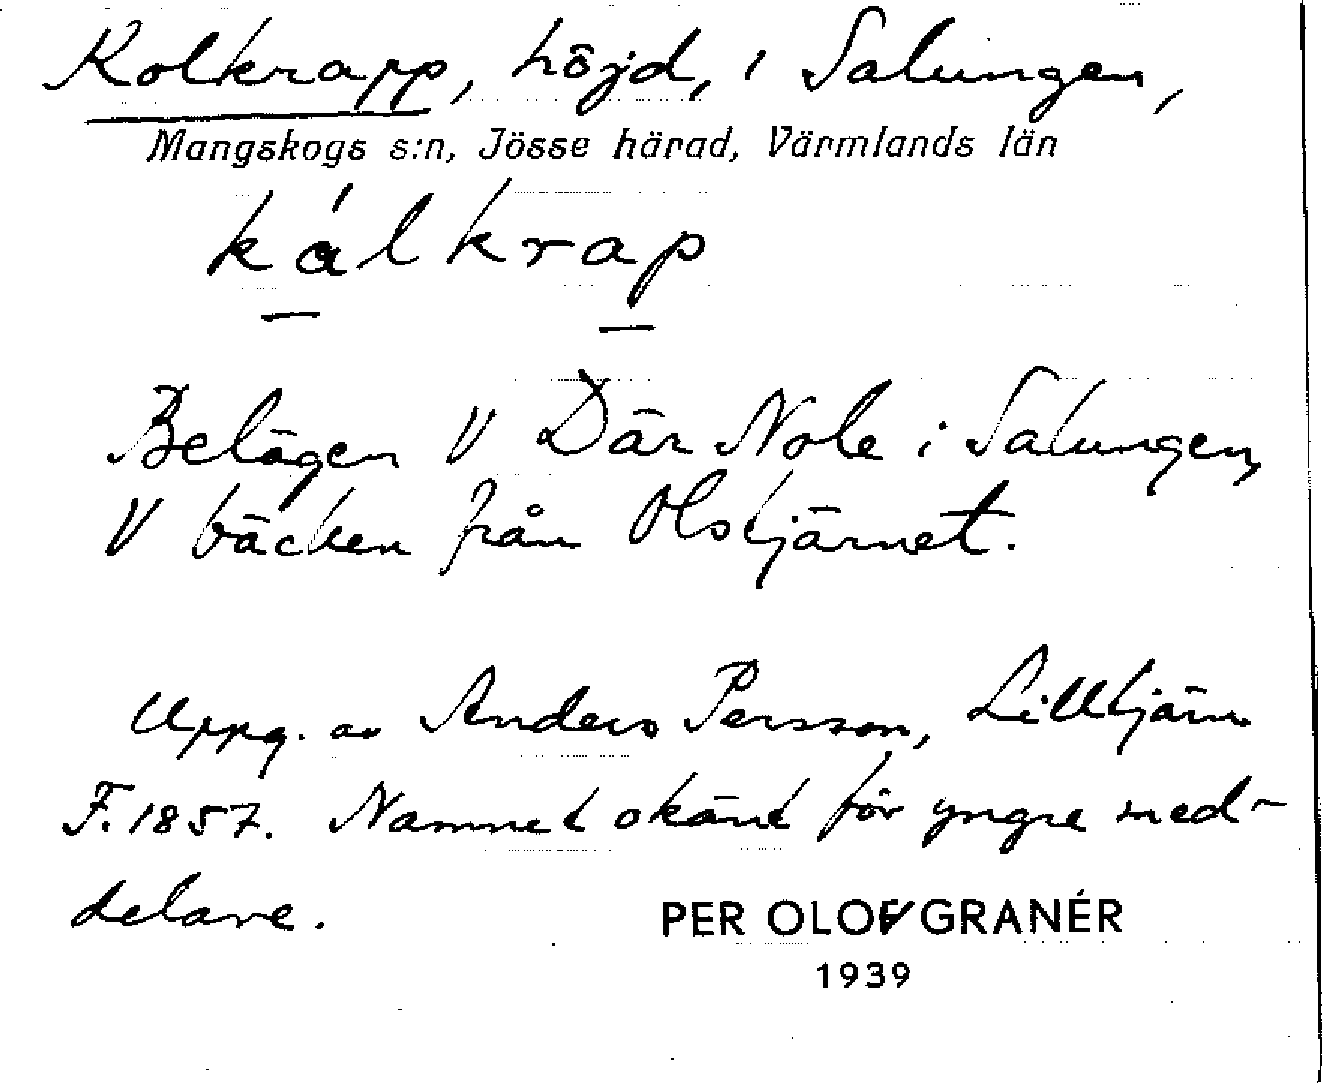 Kolkrapp, höjd, i Salungen,
Mangskogs s:n, Jösse härad, Värmlands län
kálkrap
Belägen V Där Nole i Salungen,
V bäcken från Olstjärnet.
Uppg. av Anders Persson, Lilltjärn
F. 1857. Namnet okänt för yngre med-
delare.
PER OLOF GRANÉR
1939